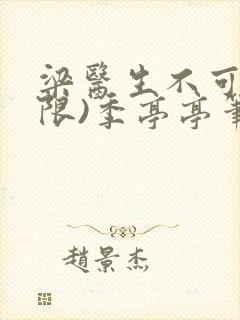 梁醫生不可
限)季亭亭筆
趙景杰